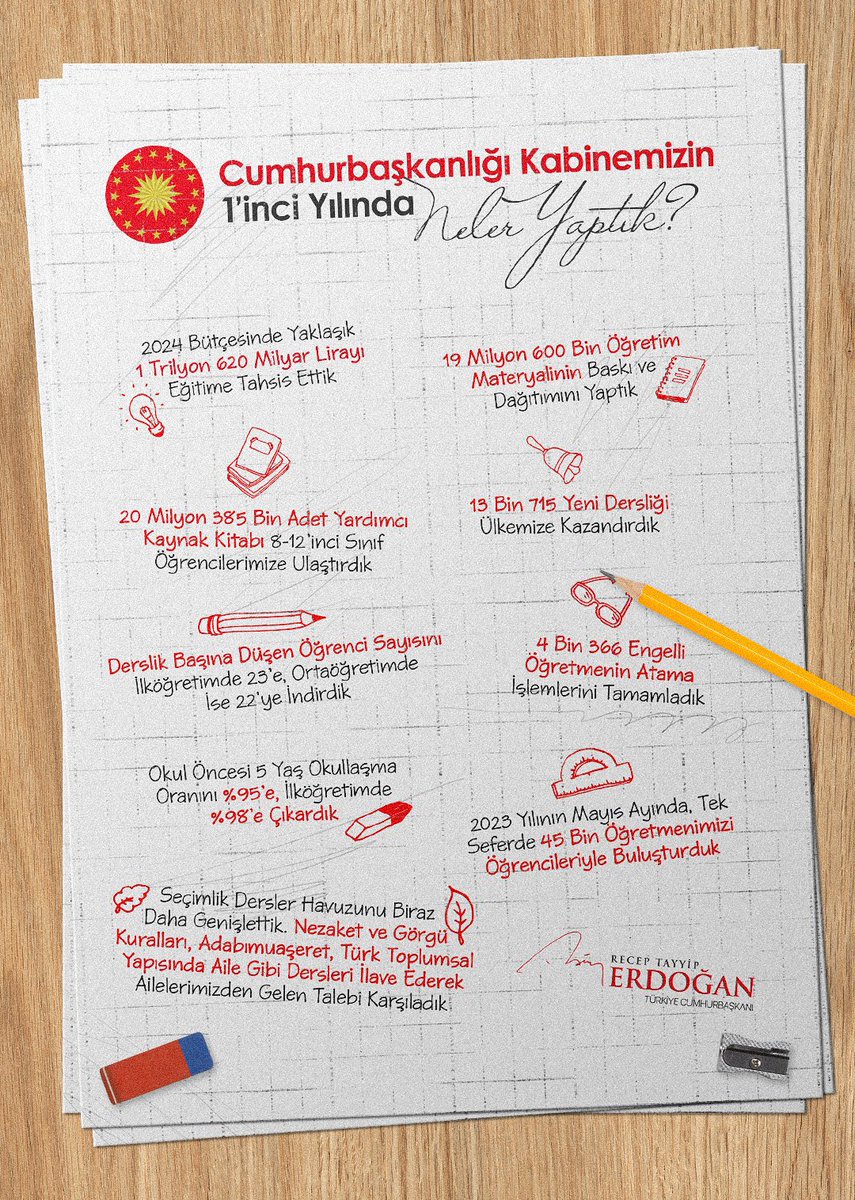 Cumhurbaşkanlığı Kabinemizin
1'inci Yılında Neler Yaptık?
2024 Bütçesinde Yaklaşık
1 Trilyon 620 Milyar Lirayı
Eğitime Tahsis Ettik
19 Milyon 600 Bin Öğretim
Materyalinin Baskı ve
Dağıtımını Yaptık
20 Milyon 385 Bin Adet Yardımcı
Kaynak Kitabı 8-12'inci Sınıf
Öğrencilerimize Ulaştırdık
13 Bin 715 Yeni Dersliği
Ülkemize Kazandırdık
Derslik Başına Düşen Öğrenci Sayısını
İlköğretimde 23'e, Ortaöğretimde
İse 22'ye İndirdik
4 Bin 366 Engelli
Öğretmenin Atama
İşlemlerini Tamamladık
Okul Öncesi 5 Yaş Okullaşma
Oranını %95'e, İlköğretimde
%98'e Çıkardık
2023 Yılının Mayıs Ayında, Tek
Seferde 45 Bin Öğretmenimizi
Öğrencileriyle Buluşturduk
Seçimlik Dersler Havuzunu Biraz
Daha Genişlettik. Nezaket ve Görgü
Kuralları, Adabımuaşeret, Türk Toplumsal
Yapısında Aile Gibi Dersleri İlave Ederek
Ailelerimizden Gelen Talebi Karşıladık
RECEP TAYYİP
ERDOĞAN
TÜRKİYE CUMHURBAŞKANI